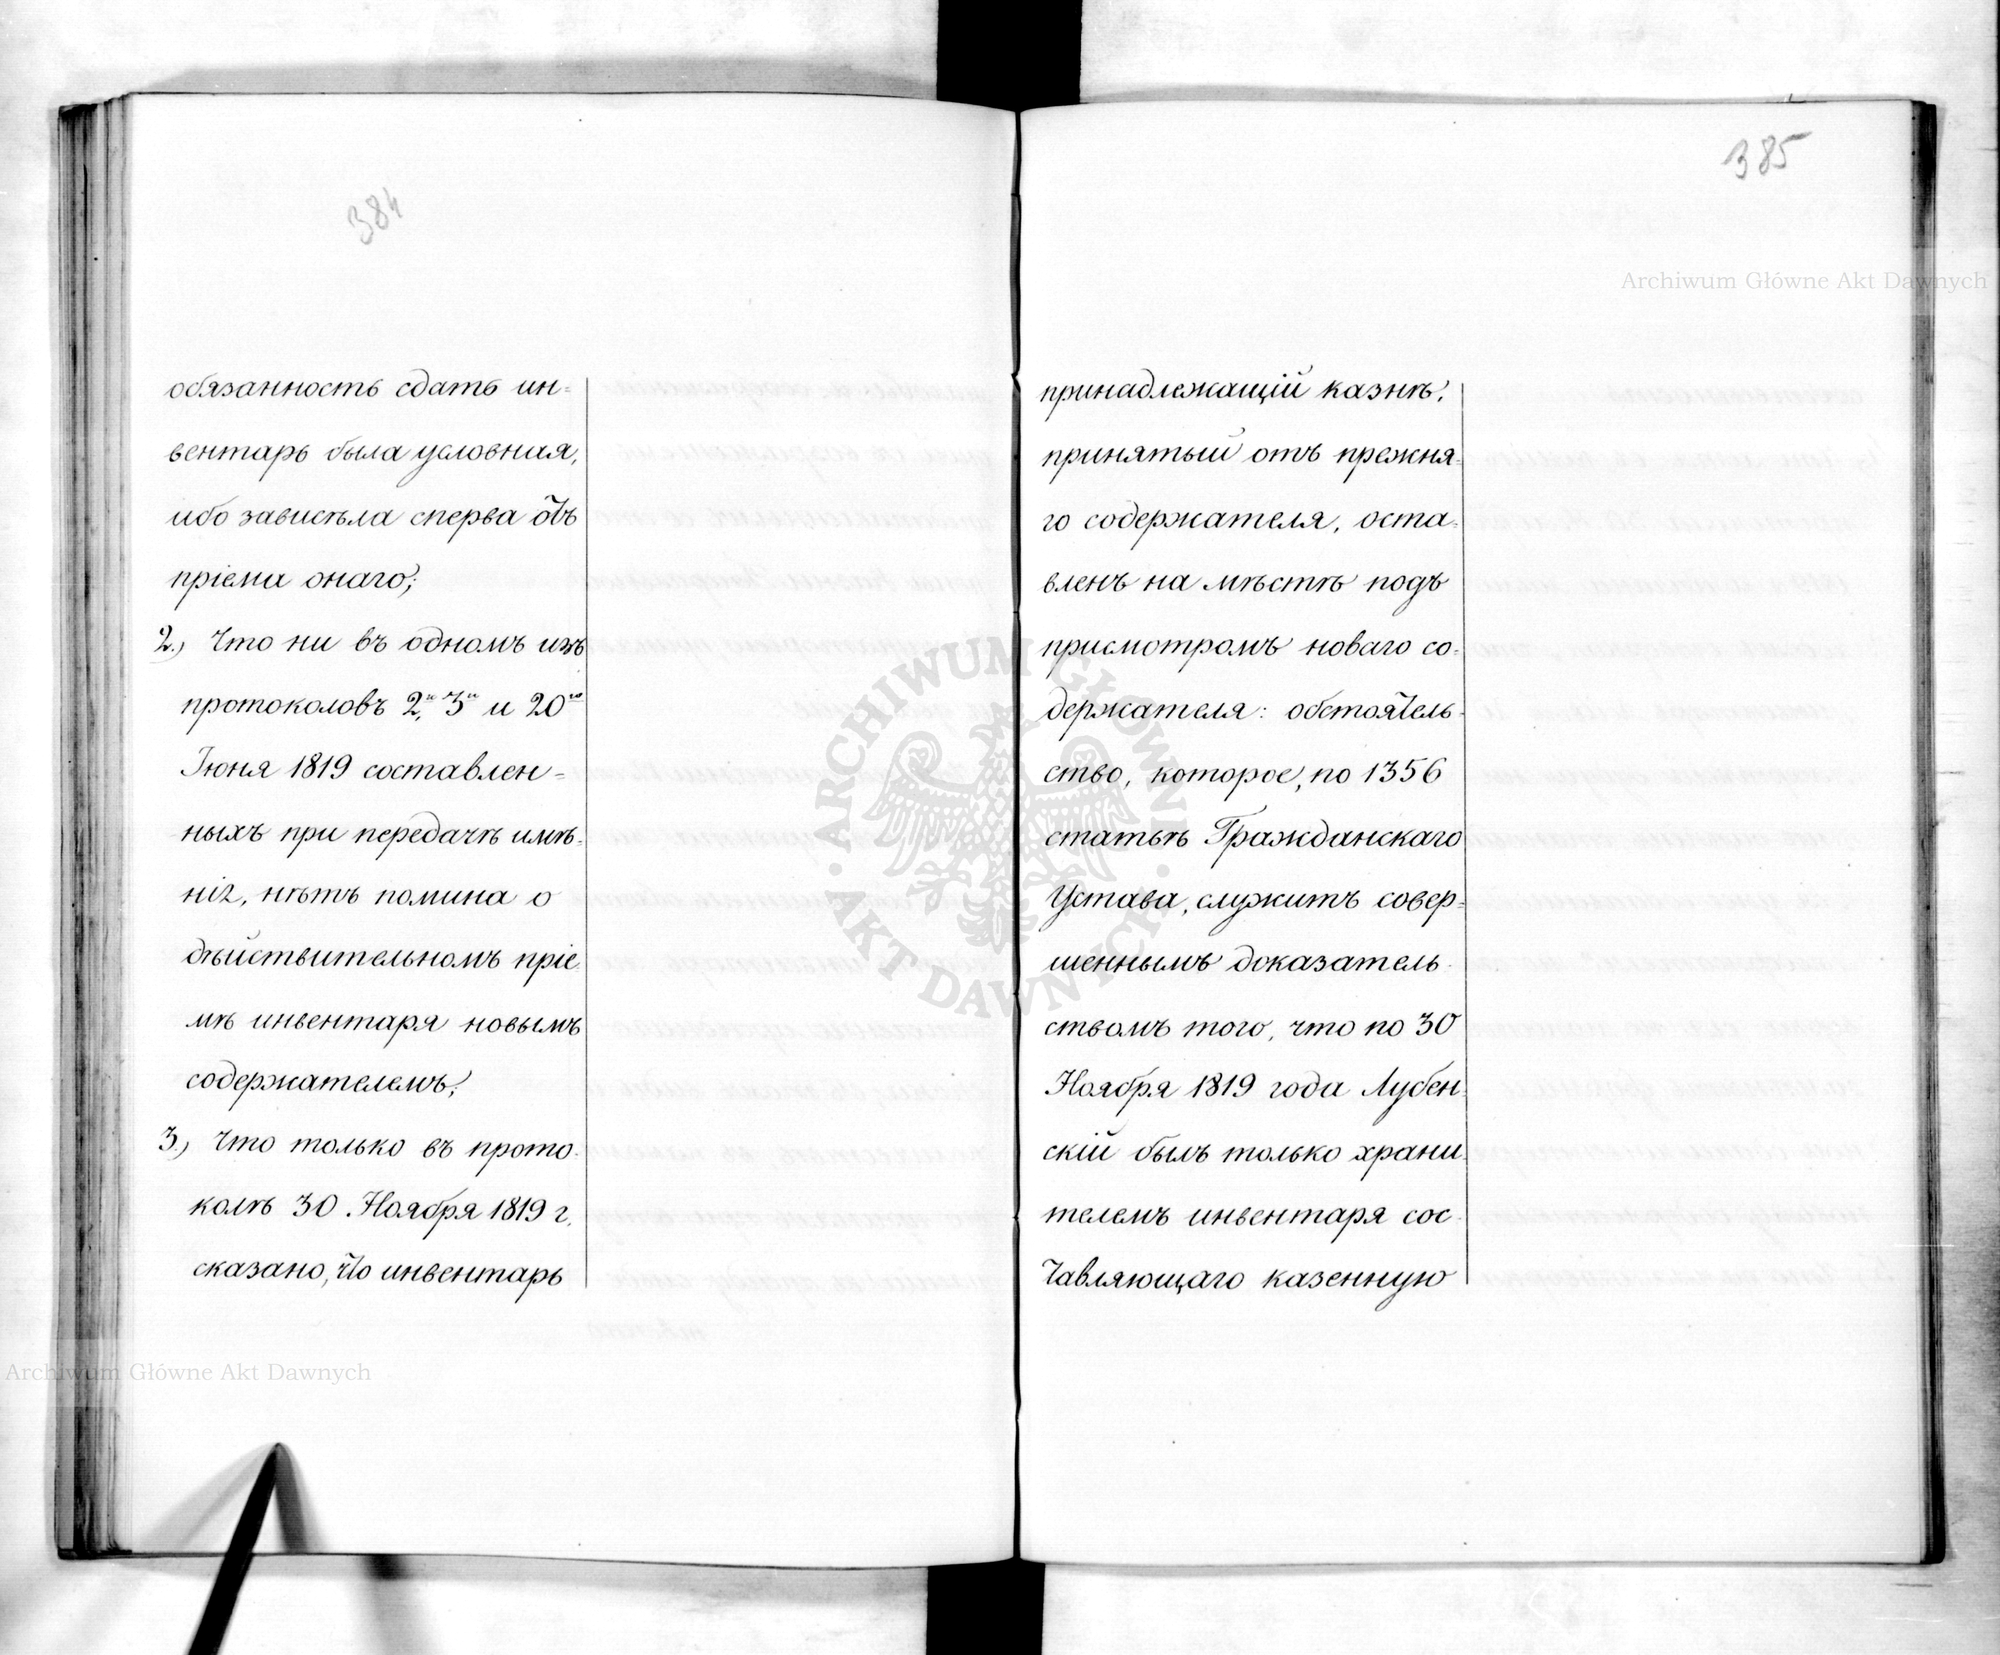 384
обязанность сдать ин=
вентарь была условная,
ибо зависѣла сперва отъ
пріема онаго;
2.) Что ни въ одномъ изъ
протоколовъ 2го, 3го и 20го
Іюня 1819 составлен=
ныхъ при передачѣ имѣ=
нія, нѣтъ помина о
дѣйствительномъ пріе
мѣ инвентаря новымъ
содержателемъ;
3.) Что только въ прото=
колѣ 30 Ноября 1819 г.
сказано, что инвентарь
385
принадлежащій казнѣ,
принятый отъ прежня=
го содержателя, оста=
вленъ на мѣстѣ подъ
присмотромъ новаго со=
держателя: обстоятель=
ство, которое, по 1356
статьѣ Гражданскаго
Устава, служитъ совер=
шеннымъ доказатель=
ствомъ того, что по 30
Ноября 1819 года Лубен=
скій былъ только храни=
телемъ инвентаря сос=
тавляющаго казенную
Archiwum Główne Akt Dawnych
ARCHIWUM GŁÓWNE · AKT DAWNYCH ·
Archiwum Główne Akt Dawnych